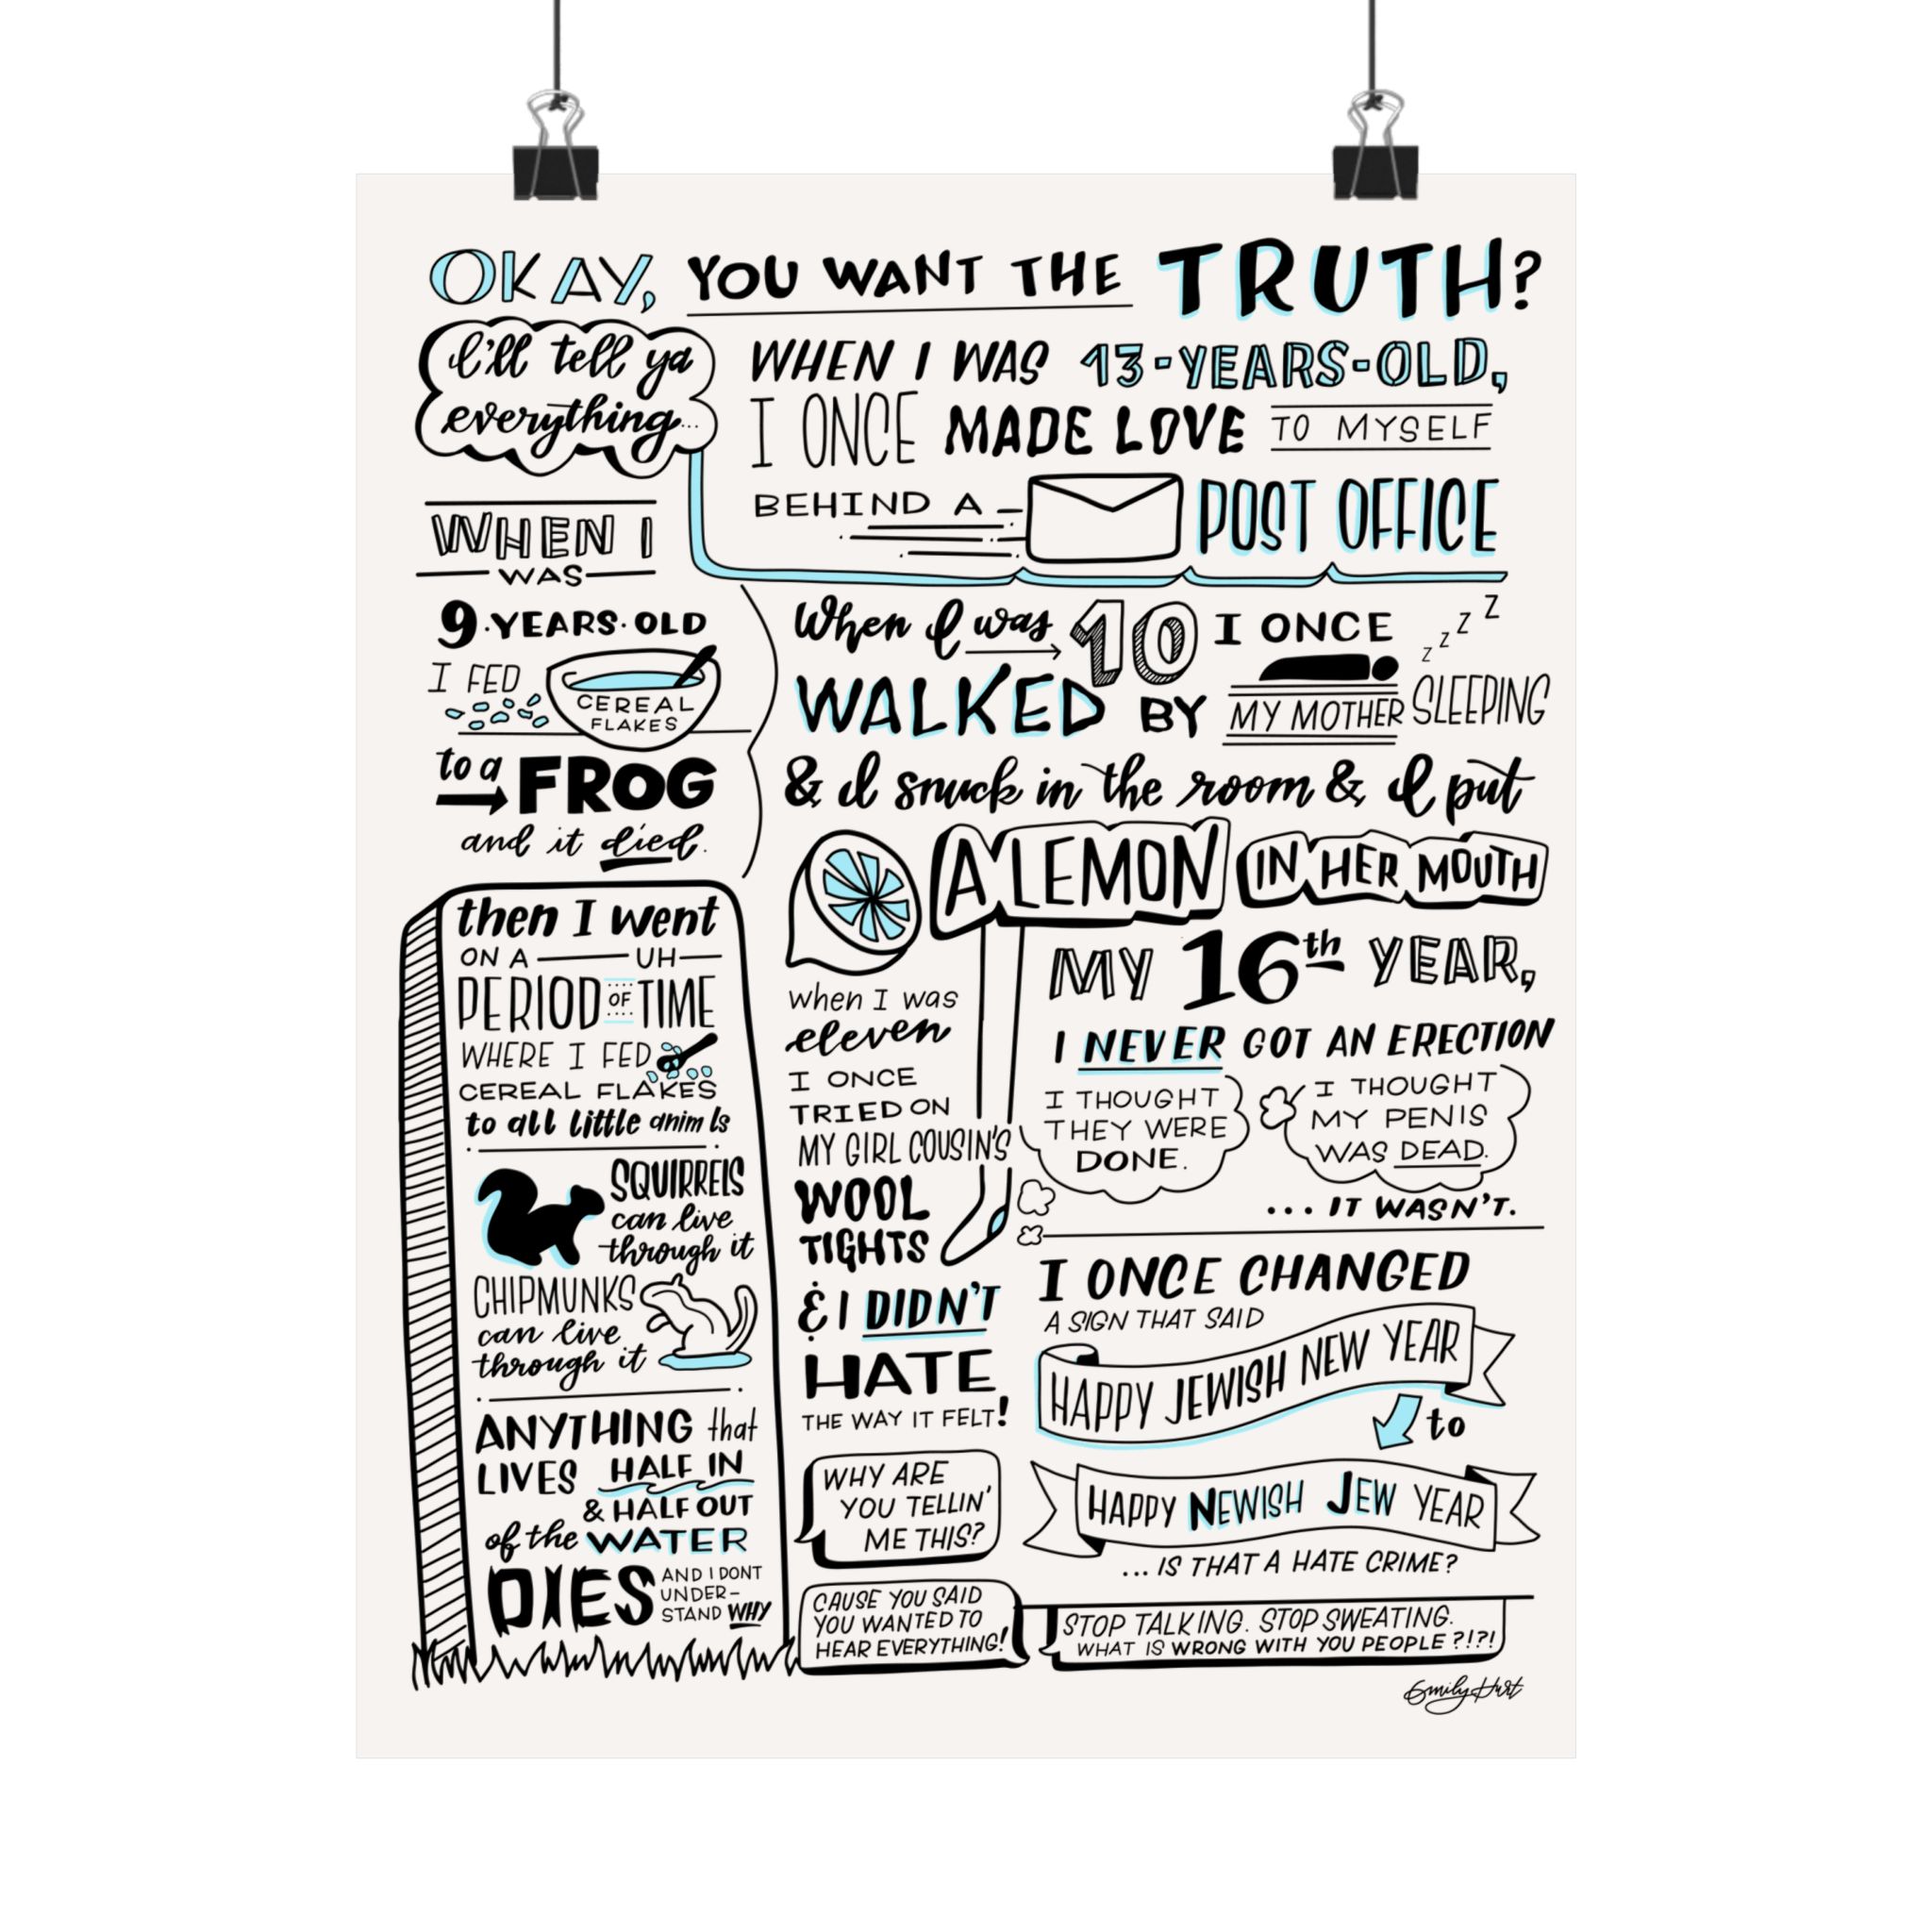 OKAY, YOU WANT THE TRUTH?
I'll tell ya
everything...
WHEN I WAS 13-YEARS-OLD,
I ONCE MADE LOVE TO MYSELF
BEHIND A POST OFFICE
WHEN I
WAS
9·YEARS·OLD
I FED
CEREAL
FLAKES
to a FROG
and it died.
then I went
ON A UH
PERIOD OF TIME
WHERE I FED
CEREAL FLAKES
to all little anim ls
SQUIRRELS
can live
through it
CHIPMUNKS
can live
through it
ANYTHING that
LIVES HALF IN
& HALF OUT
of the WATER
DIES AND I DONT
UNDER-
STAND WHY
When I was 10 I ONCE
z z z z
WALKED BY MY MOTHER SLEEPING
& I snuck in the room & I put
A LEMON IN HER MOUTH
when I was
eleven
I ONCE
TRIED ON
MY GIRL COUSIN'S
WOOL
TIGHTS
& I DIDN'T
HATE
THE WAY IT FELT!
WHY ARE
YOU TELLIN'
ME THIS?
CAUSE YOU SAID
YOU WANTED TO
HEAR EVERYTHING!
MY 16th YEAR,
I NEVER GOT AN ERECTION
I THOUGHT
THEY WERE
DONE.
I THOUGHT
MY PENIS
WAS DEAD.
... IT WASN'T.
I ONCE CHANGED
A SIGN THAT SAID
HAPPY JEWISH NEW YEAR
to
HAPPY NEWISH JEW YEAR
... IS THAT A HATE CRIME?
STOP TALKING. STOP SWEATING.
WHAT IS WRONG WITH YOU PEOPLE ?!?!
Emily Hurt